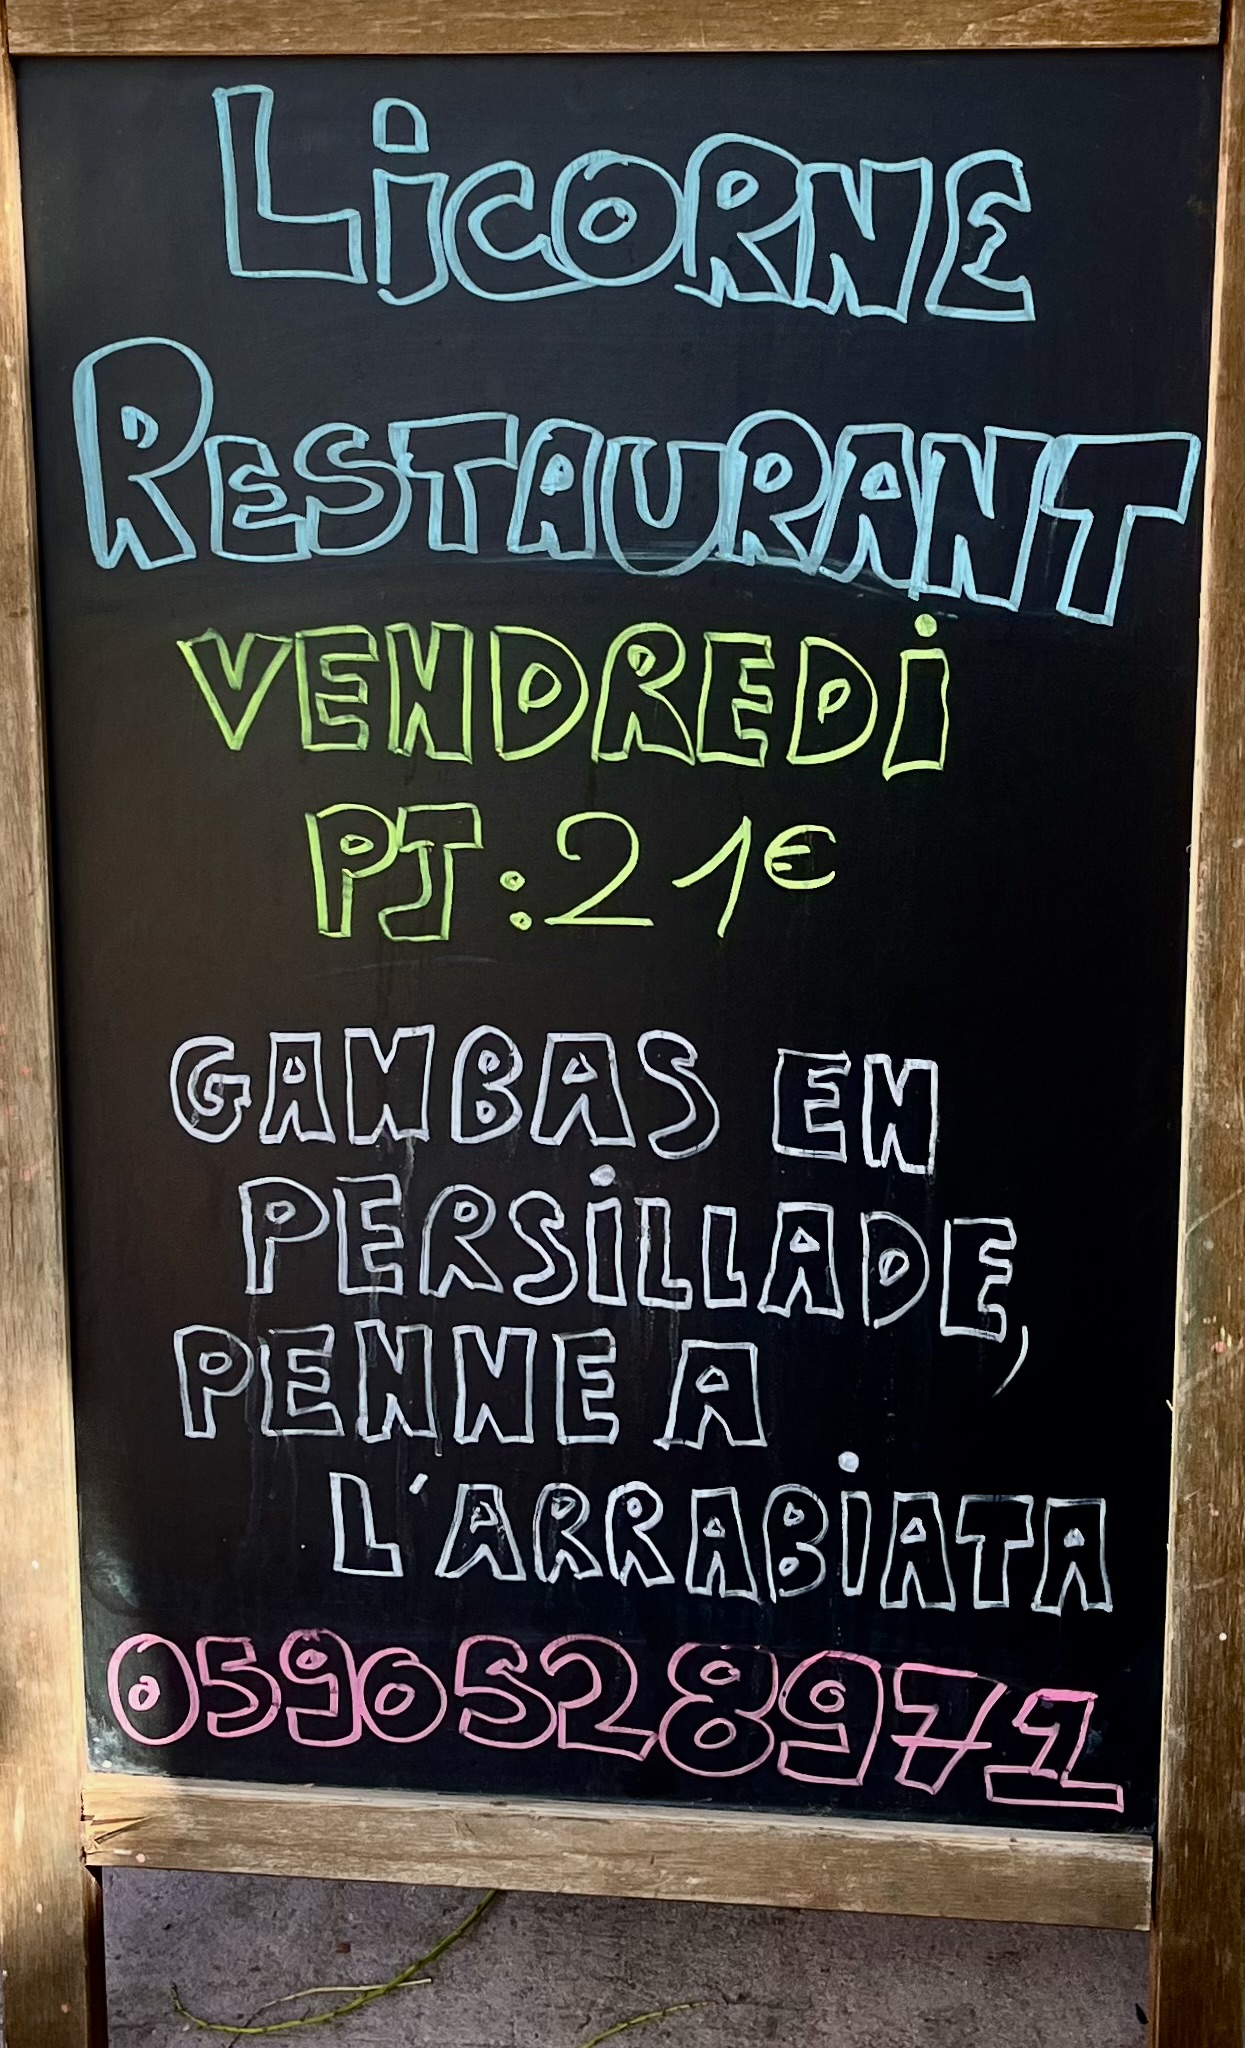 LiCORNE
RESTAURANT
VENDREDi
PJ : 21€
GAMBAS EN
PERSiLLADE,
PENNE A
L'ARRABiATA
0590528971